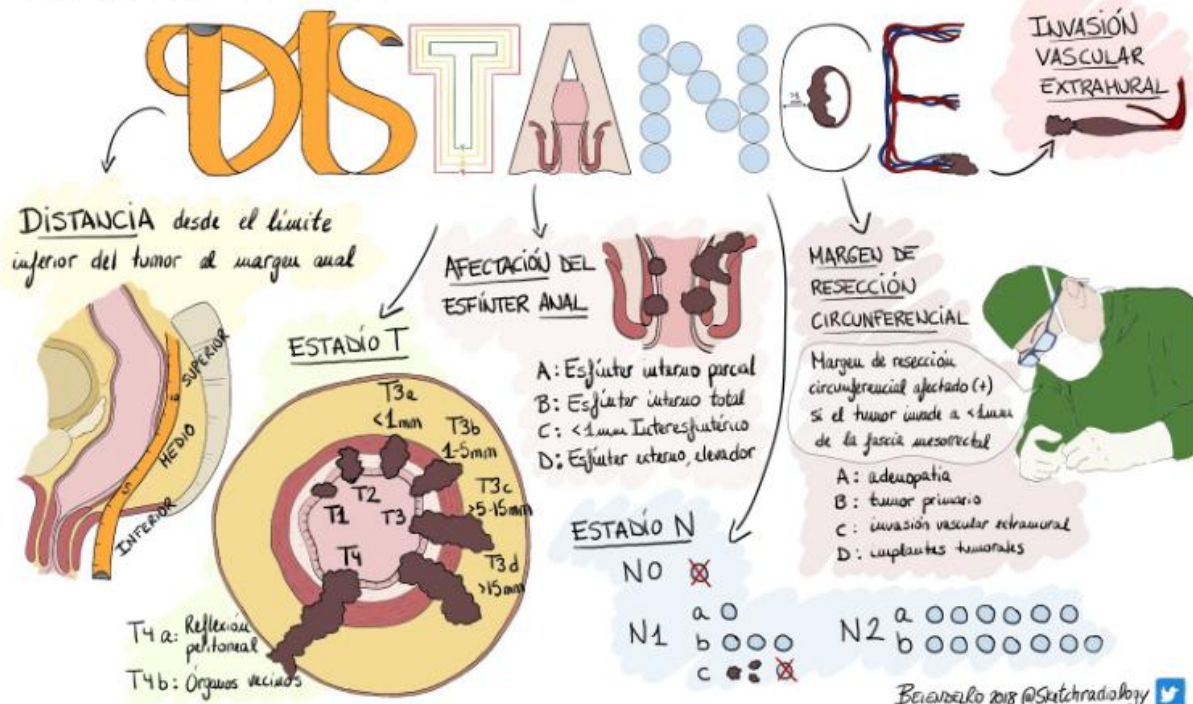 DISTANCE
INVASIÓN
VASCULAR
EXTRAMURAL
DISTANCIA desde el límite
inferior del tumor al margen anal
SUPERIOR
MEDIO
INFERIOR
5
ESTADÍO T
T3a
<1mm
T3b
1-5mm
T3c
>5-15mm
T3d
>15mm
T1
T2
T3
T4
T4a: Reflexión
peritoneal
T4b: Órganos vecinos
AFECTACIÓN DEL
ESFÍNTER ANAL
A: Esfínter interno parcial
B: Esfínter interno total
C: <1mm Interesfintérico
D: Esfínter externo, elevador
MARGEN DE
RESECCIÓN
CIRCUNFERENCIAL
Margen de resección
circunferencial afectado (+)
Si el tumor invade a <1mm
de la fascia mesorrectal
A: adenopatia
B: tumor primario
C: invasión vascular extramural
D: implantes tumorales
ESTADÍO N
N0
N1
a
b
c
N2
a
b
BELENDELRO 2018 @Sketchradiology